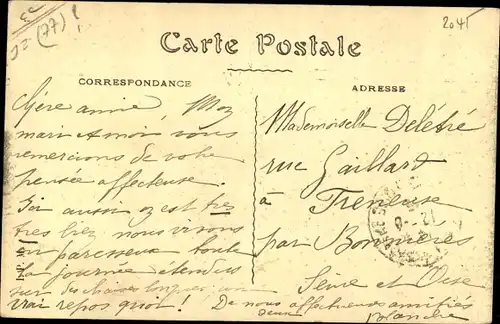 J= (77)!
2041
Carte Postale
CORRESPONDANCE
ADRESSE
Chère amie, Mon
mari et moi vous
remercions de votre
pensée affectueuse.
Ici aussi on est très
très bien nous vivons
en paresseux toute
la journée étendus
sur des chaises longues, un
vrai repos quoi! De nous
deux affectueuses amitiés
Blanche
Mademoiselle Delétré
rue Gaillard
à Freneuse
par Bonnières
Seine et Oise